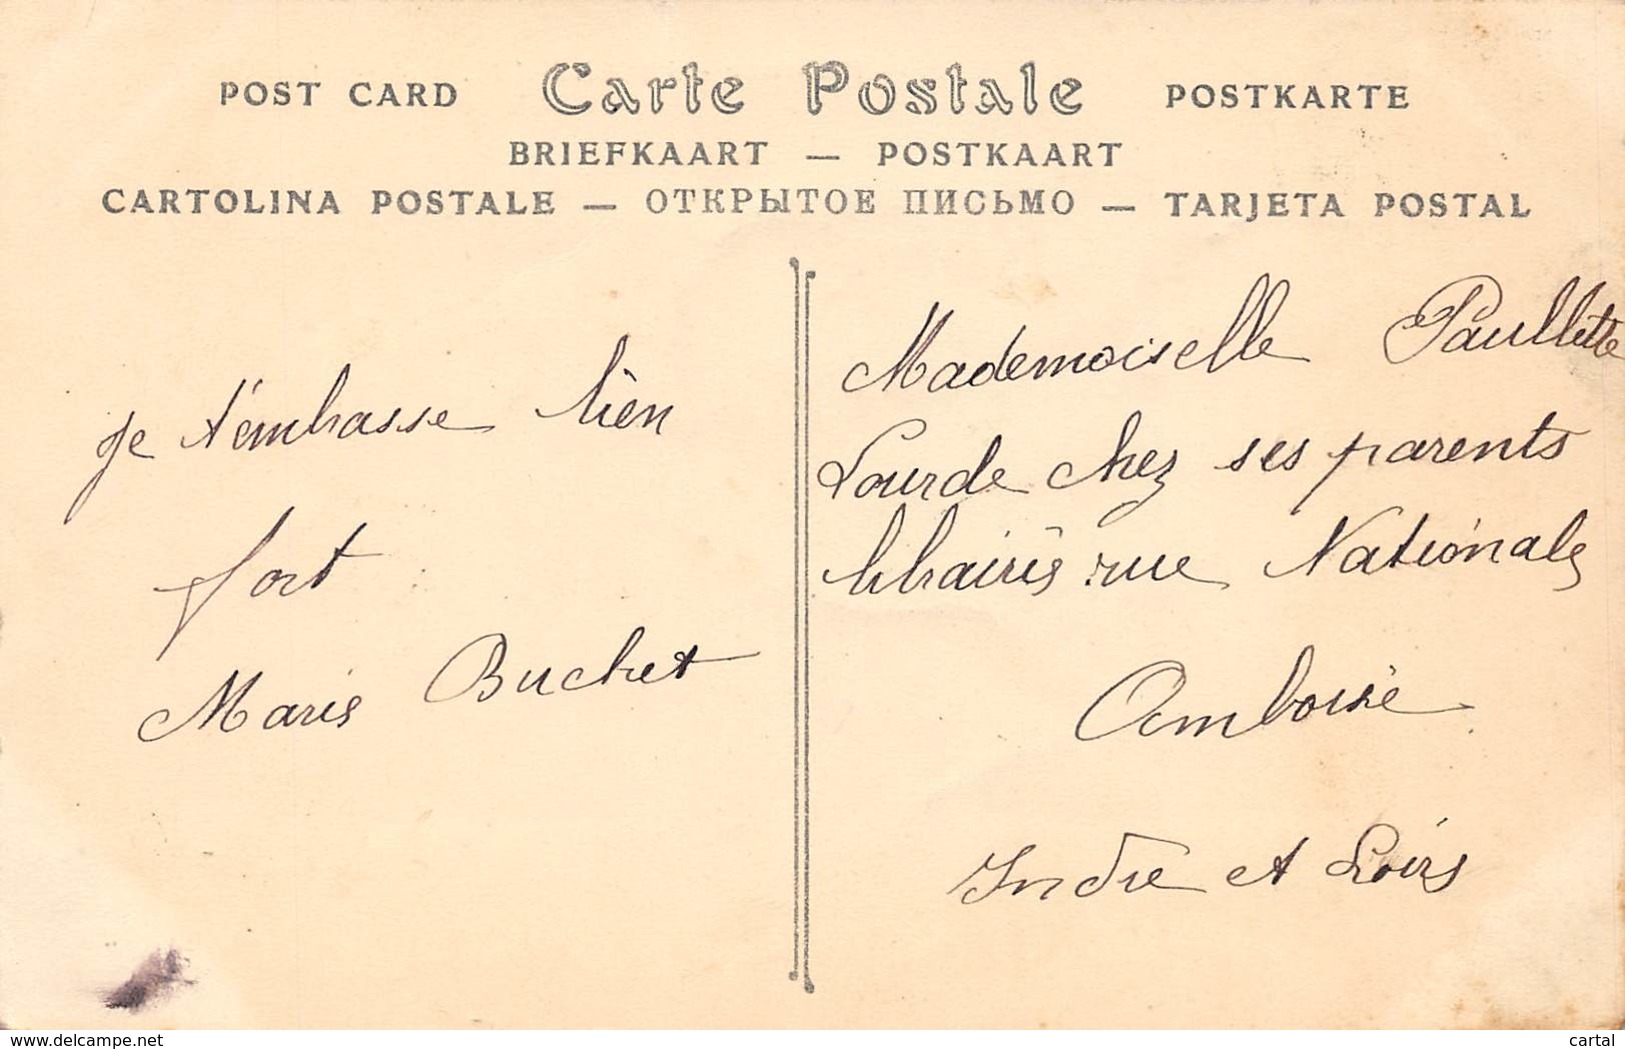 POST CARD Carte Postale POSTKARTE
BRIEFKAART — POSTKAART
CARTOLINA POSTALE — ОТКРЫТОЕ ПИСЬМО — TARJETA POSTAL
je t'embrasse bien
fort
Marie Buchet
Mademoiselle Paullette
Lourde chez ses parents
libraires rue Nationale
Amboise
Indre et Loire
www.delcampe.net
cartal